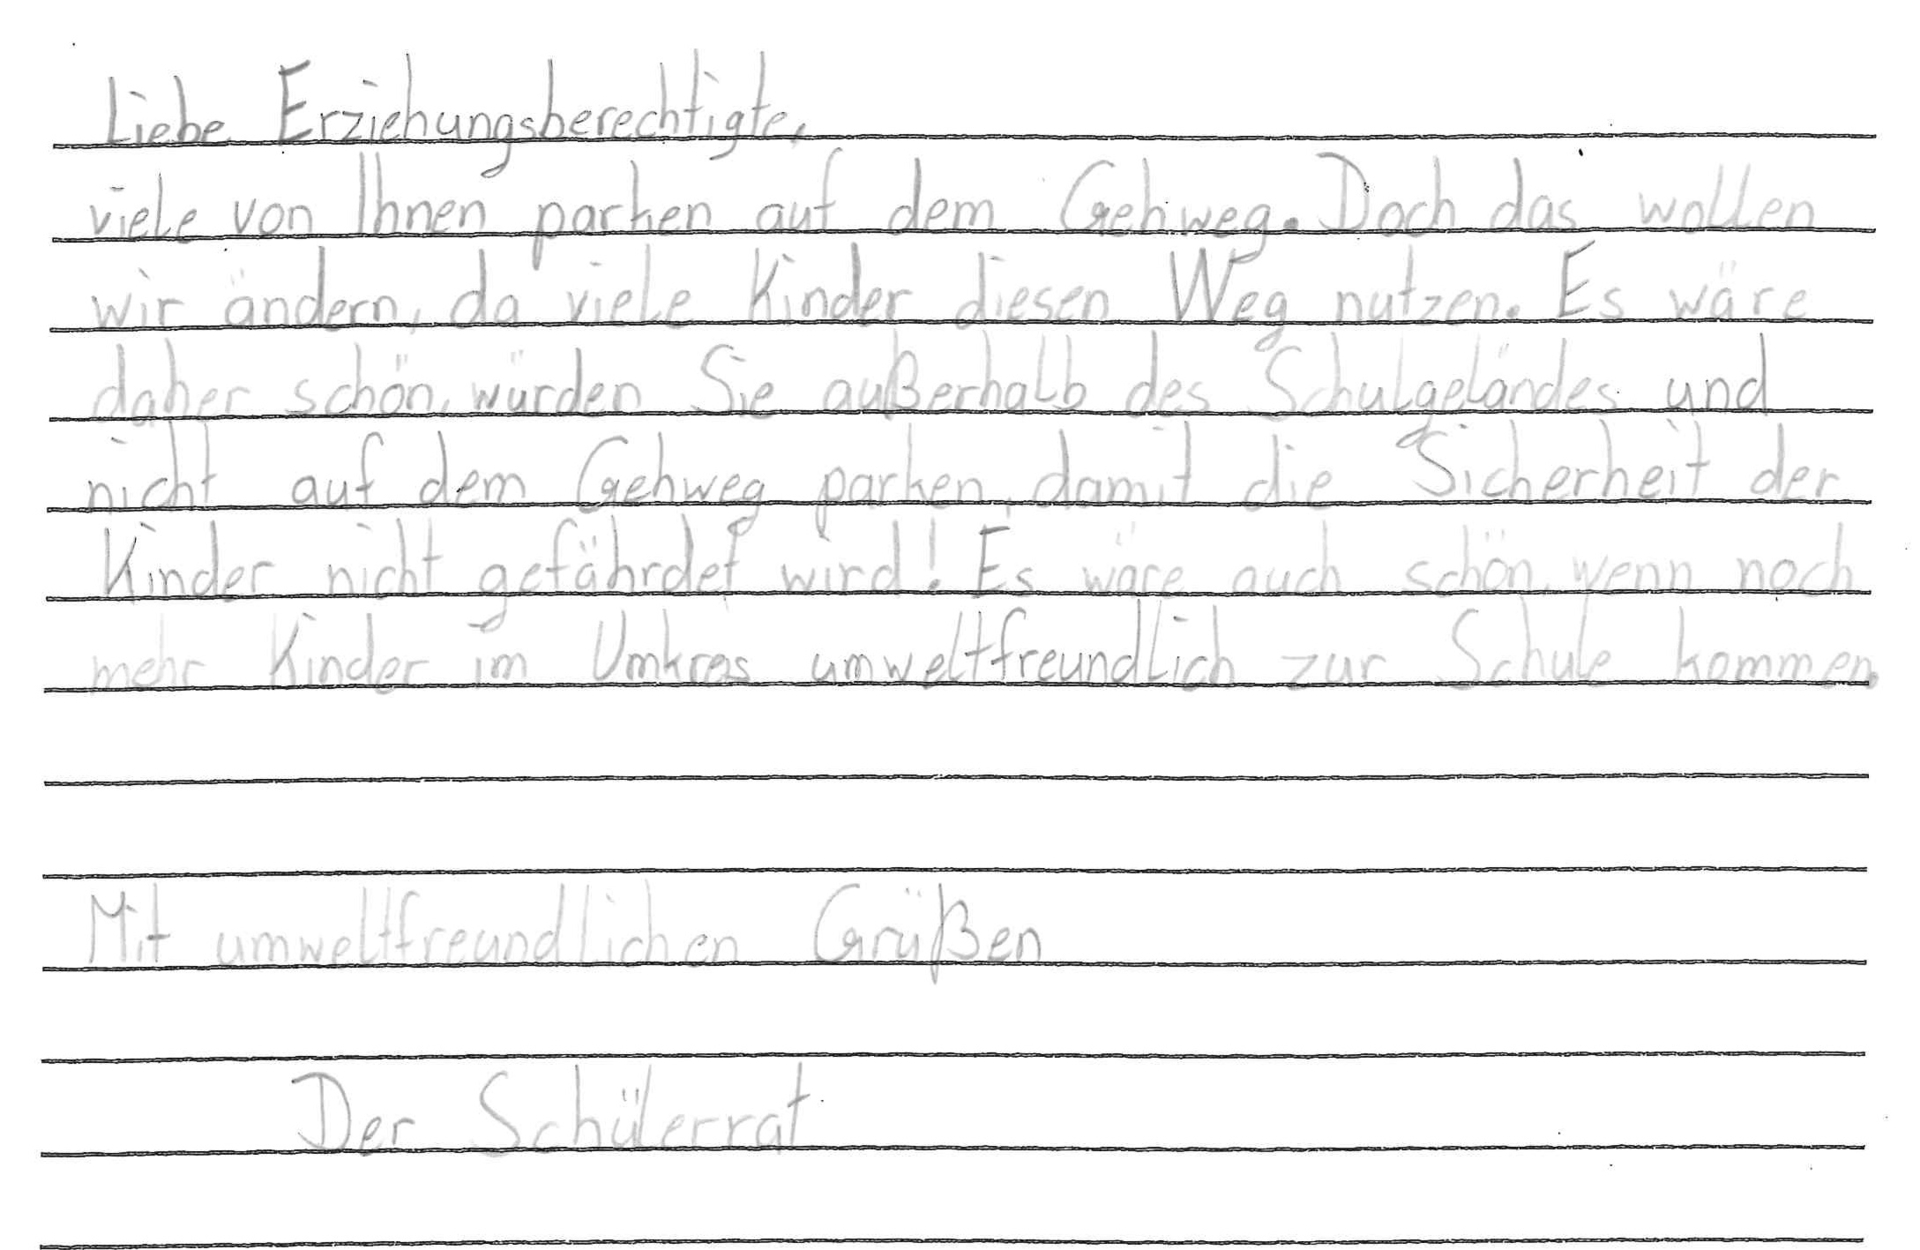 Liebe Erziehungsberechtigte,
viele von Ihnen parken auf dem Gehweg. Doch das wollen
wir ändern, da viele Kinder diesen Weg nutzen. Es wäre
daher schön, würden Sie außerhalb des Schulgeländes und
nicht auf dem Gehweg parken, damit die Sicherheit der
Kinder nicht gefährdet wird! Es wäre auch schön, wenn noch
mehr Kinder im Umkres umweltfreundlich zur Schule kommen.
Mit umweltfreundlichen Grüßen
Der Schülerrat